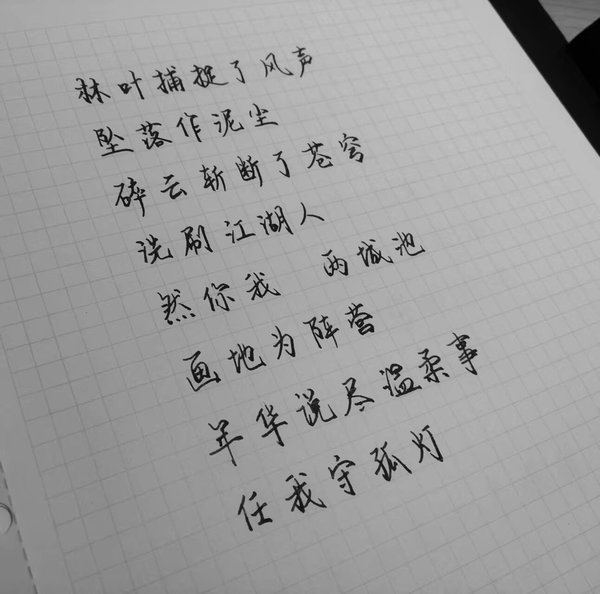 林叶捕捉了风声
坠落作泥尘
碎云斩断了苍穹
洗刷江湖人
然你我 两城池
画地为阵营
年华说尽温柔事
任我守孤灯